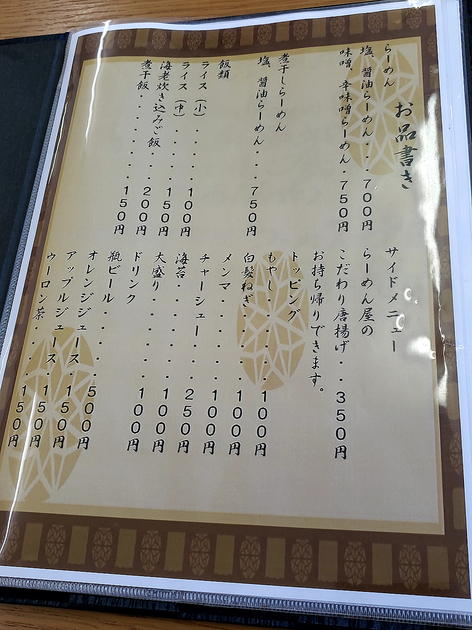 お品書き
らーめん
塩、醤油らーめん・・700円
味噌、辛味噌らーめん・750円
煮干しらーめん
塩、醤油らーめん・・750円
飯類
ライス（小）・・・・100円
ライス（中）・・・・150円
海老炊き込みご飯・・200円
煮干飯・・・・・・・150円
サイドメニュー
らーめん屋の
こだわり唐揚げ・・350円
お持ち帰りできます。
トッピング
もやし・・・・・・100円
白髪ねぎ・・・・・100円
メンマ・・・・・・100円
チャーシュー・・・250円
海苔・・・・・・・100円
大盛り・・・・・・100円
ドリンク
瓶ビール・・・・・500円
オレンジジュース・150円
アップルジュース・150円
ウーロン茶・・・・150円